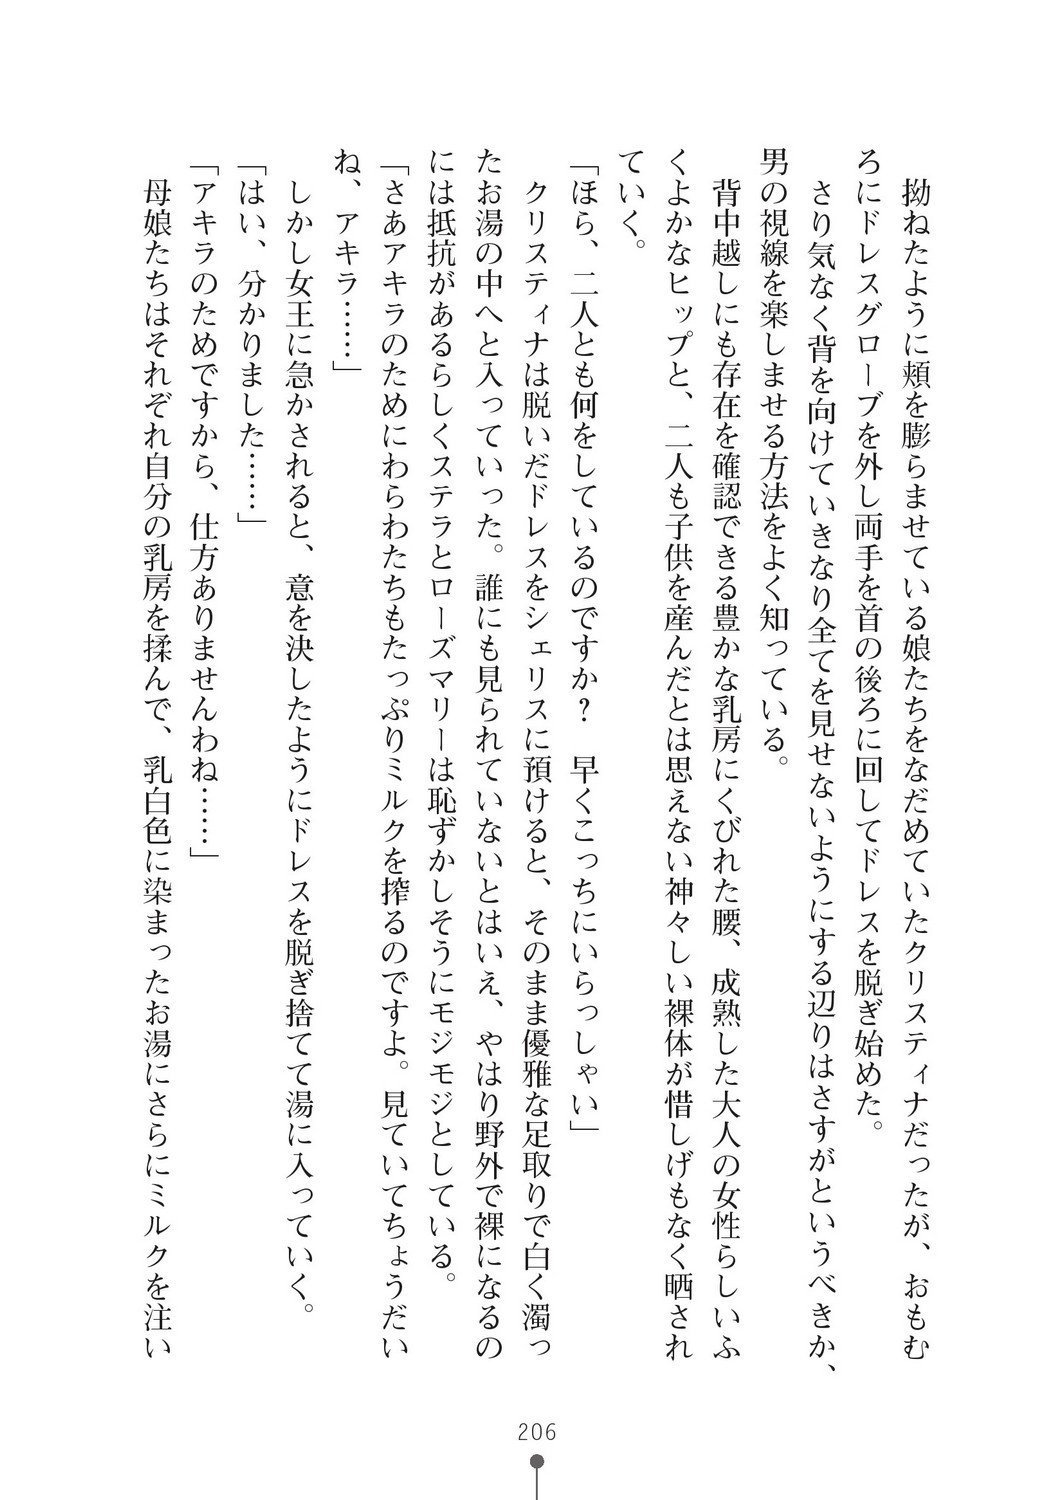 拗ねたように頬を膨らませている娘たちをなだめていたクリスティナだったが、おもむ
ろにドレスグローブを外し両手を首の後ろに回してドレスを脱ぎ始めた。
さり気なく背を向けていきなり全てを見せないようにする辺りはさすがというべきか、
男の視線を楽しませる方法をよく知っている。
背中越しにも存在を確認できる豊かな乳房にくびれた腰、成熟した大人の女性らしいふ
くよかなヒップと、二人も子供を産んだとは思えない神々しい裸体が惜しげもなく晒され
ていく。
「ほら、二人とも何をしているのですか？　早くこっちにいらっしゃい」
クリスティナは脱いだドレスをシェリスに預けると、そのまま優雅な足取りで白く濁っ
たお湯の中へと入っていった。誰にも見られていないとはいえ、やはり野外で裸になるの
には抵抗があるらしくステラとローズマリーは恥ずかしそうにモジモジとしている。
「さあアキラのためにわらわたちもたっぷりミルクを搾るのですよ。見ていてちょうだい
ね、アキラ……」
しかし女王に急かされると、意を決したようにドレスを脱ぎ捨てて湯に入っていく。
「はい、分かりました……」
「アキラのためですから、仕方ありませんわね……」
母娘たちはそれぞれ自分の乳房を揉んで、乳白色に染まったお湯にさらにミルクを注い
206